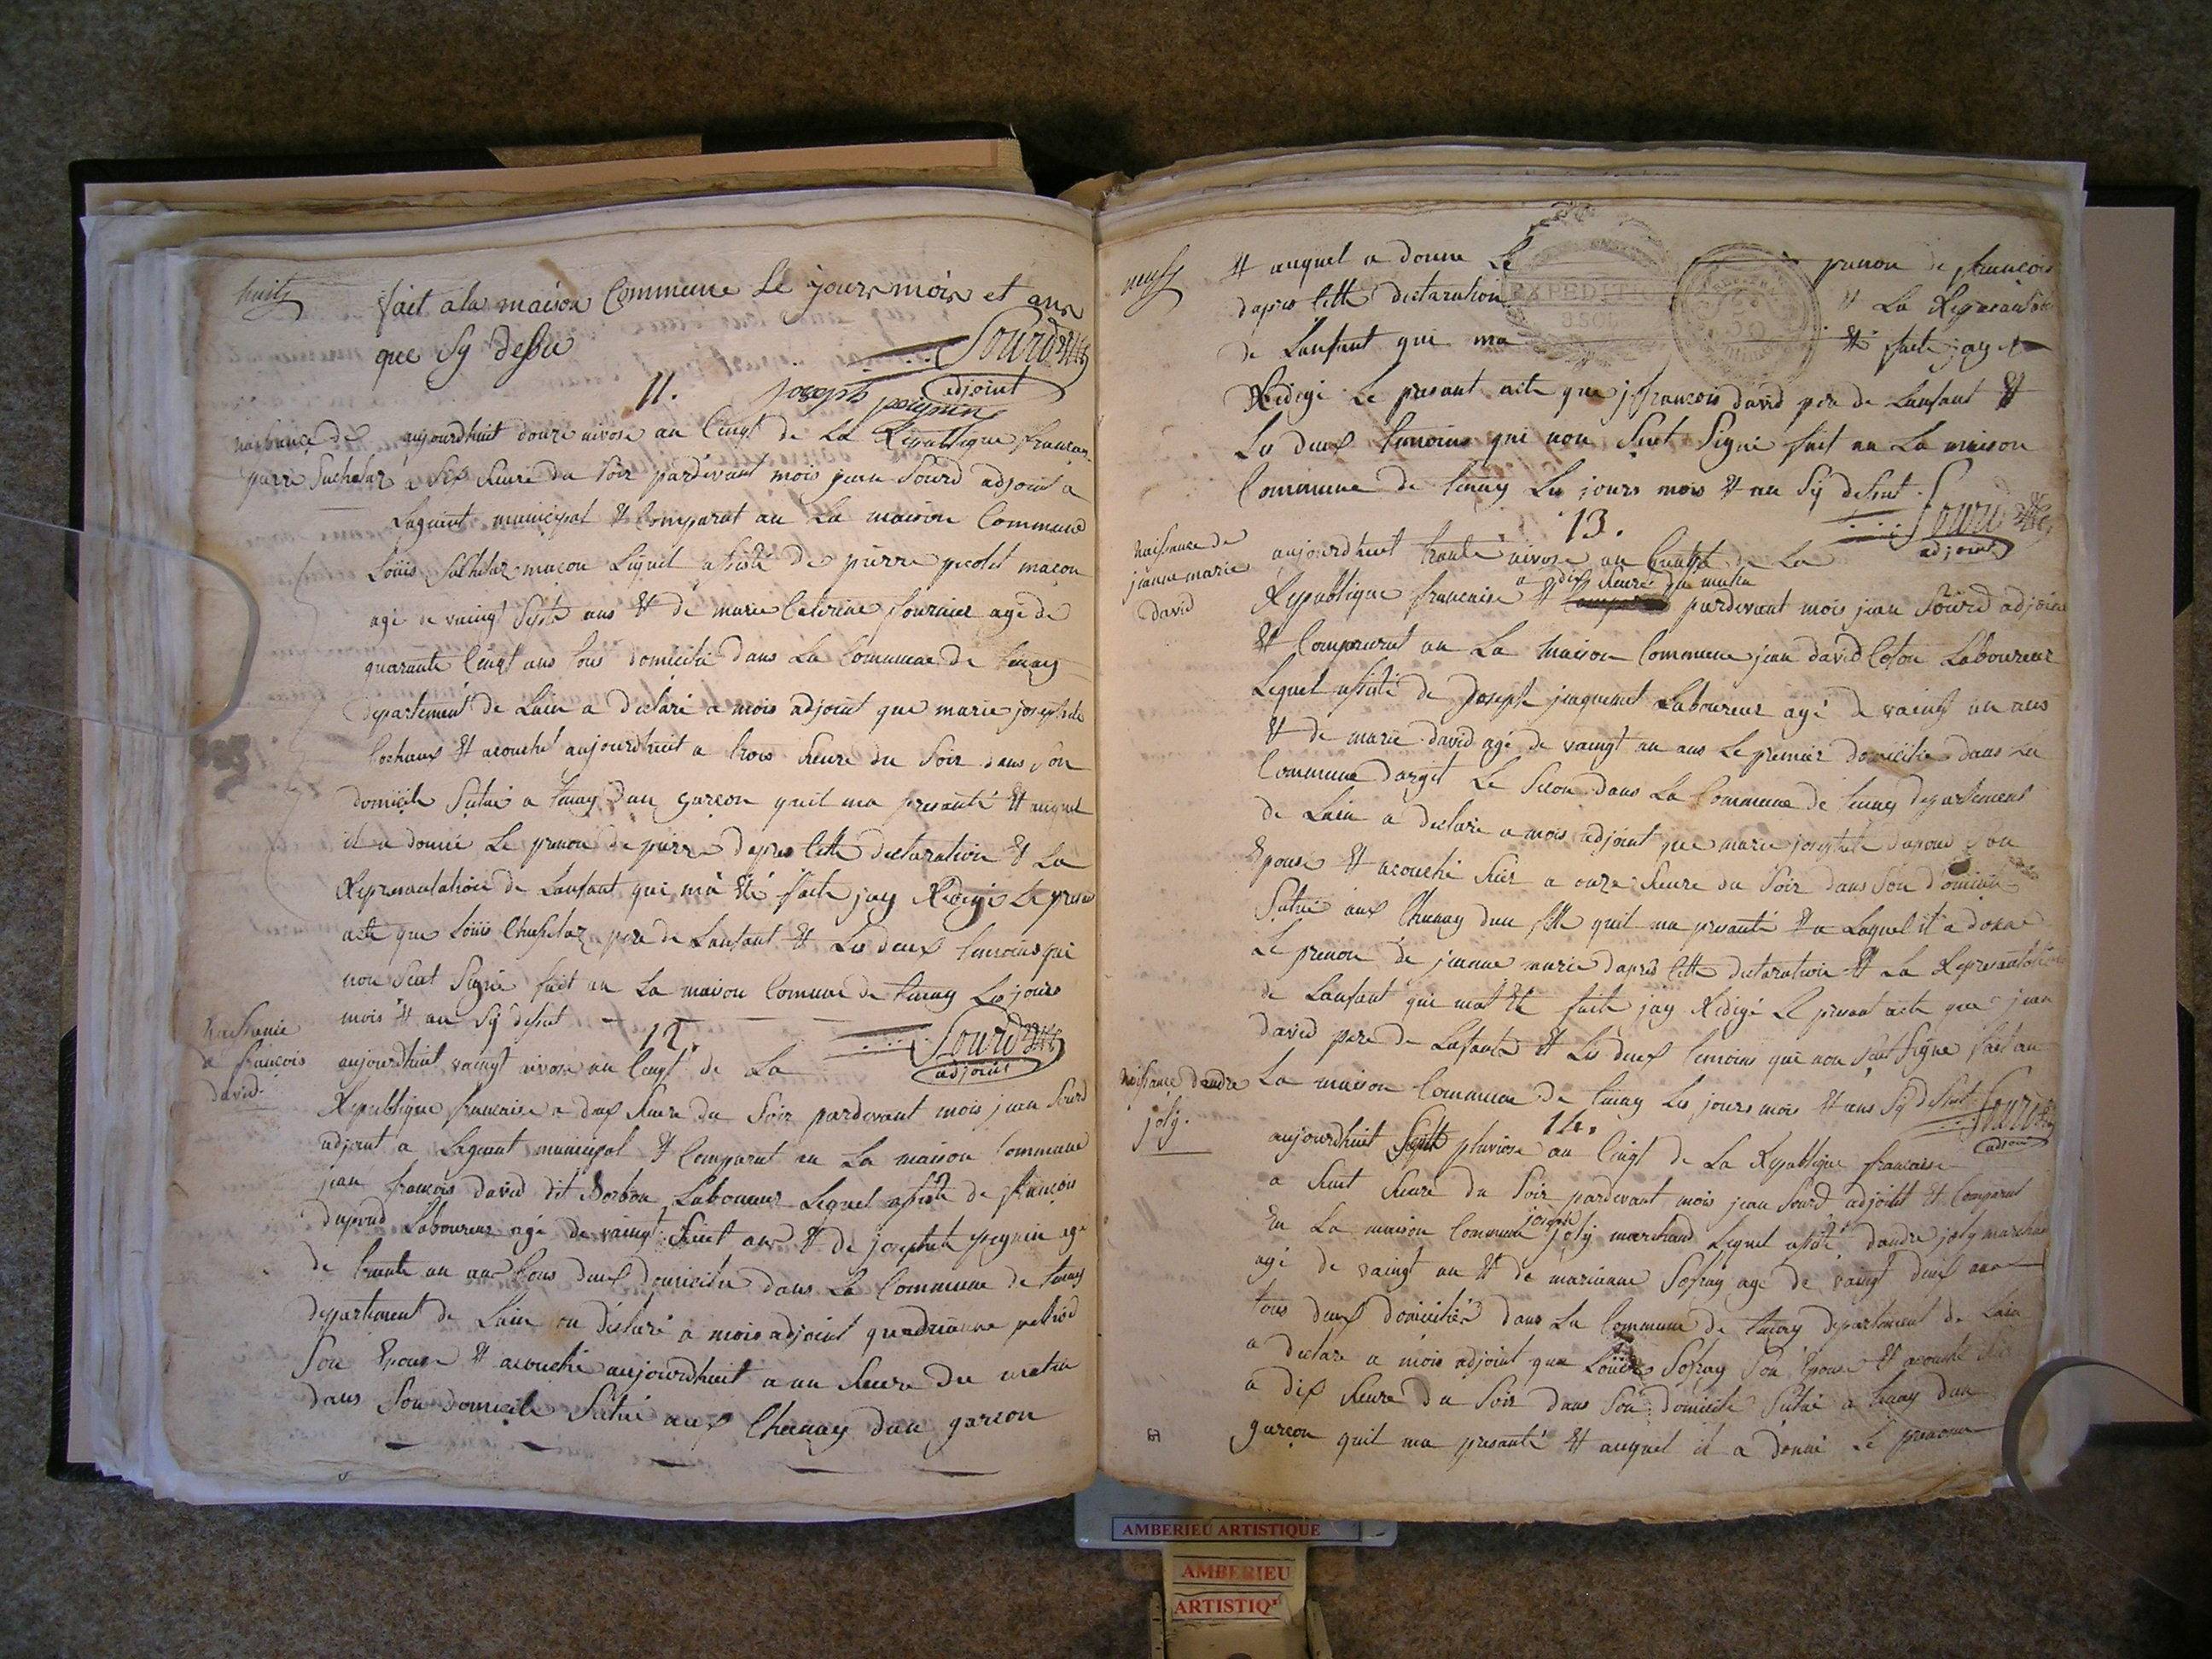 huitz
fait a la maison Commune Le jours mois et ans
que Sy desu
Sourd
adjoint
joseph peysson
11.
naissance de
pierre Suchetaz
aujourdhuit douze nivose an Cinqt de La Republique francaise
a Six heure du Soir pardevant mois jean Sourd adjoint a
Lagent municipal Et Comparat an La maison Commune
Louis Suchetaz macon Lequel assisté de pierre picolet macon
agé de vaingt Sept ans Et de marie Caterine fournier age de
quarante Cinqt ans tous domicilié dans La Commune de tenay
departement de Lain a declaré a mois adjoint que marie josephte
Cochaux Et acouché aujourdhuit a trois heure du Soir dans Son
domicile Situé a tenay dun garcon quil ma presanté Et auquel
il a donné Le prenon de pierre dapres Cette declaration Et La
Represantation de Lanfant qui ma été faite jay Redigé Le presan
acte que Louis Chuchetaz pere de Lanfant Et Les deux temoins qui
non Scut Signé fait an La maison Comune de tenay Les jours
mois Et an Sy desut
Sourd
adjoint
12.
naissance
de francois
david
aujourdhuit vaingt nivose an Cinqt de La
Republique francaise a dix heure du Soir pardevant mois jean Sourd
adjoint a Lagent municipal Et Comparut en La maison Commune
jean francois david dit Borbon Laboureur Lequel assisté de francois
dupond Laboureur agé de vaingt huit ans Et de josephte peysson agé
de trante un ans tous deux domicilie dans La Commune de tenay
departement de Lain on déclaré a mois adjoint que
Son Epouse Et acouché aujourdhuit a un heure du matin
dans Son domicile Situé aux Chenay dun garcon
neufz
Et auquel a donne Le prenon de francois
dapres Cette declaration Et La Represantation
EXPEDIT
3 SOLS
de Lanfant qui ma été faite jay
Redigé Le presant acte que j francois david pere de Lanfant Et
Les deux temoins qui non Scut Signé fait an La maison
Commune de tenay Les jours mois Et an Sy desut
Sourd
adjoint
13.
naissance de
jeanne marie
david
aujourdhuit trante nivose an Cinqt de La
Republique francaise a dix heure du matin pardevant mois jean Sourd adjoint
Et Comparut an La Maison Commune jean david Coton Laboureur
Lequel assisté de Joseph jaquemet Laboureur agé de vaingt un ans
Et de marie david agé de vaingt un ans Le premier domicilie dans La
Commune dargit Le Secon dans La Commune de tenay departement
de Lain a declare a mois adjoint que marie josephte dupond Son
Epouse Et acouché hier a onze heure du Soir dans Son domicile
Situé aux Chenay dun fille quil ma presanté Et a Laquel il a donne
Le prenon de jeanne marie dapres Cette declaration Et La Represantation
de Lanfant qui mat Eté faite jay Redigé Le presant acte que jean
david pere de Lafant Et Les deux temoins qui non Scut Signe fait an
La maison Commune de tenay Les jours mois Et ans Sy desut
Sourd
adjoin
14.
naissance dandre
joly.
aujourdhuit Sept pluviose an Cinqt de La Republique francaise
a huit heure du Soir pardevant mois jean Sourd adjoint Et Comparut
En La maison Commune joseph joly marchand Lequel assisté dandre joly marchand
agé de vaingt un Et de marianne Sofray agé de vaingt deux ans
tous deux domiciliés dans La Commune de tenay departement de Lain
a declare a mois adjoint que Louise Sofray Son Epouse Et acouché
a dix heure du Soir dans Son domicile Situé a tenay dun
garçon quil ma presanté Et auquel il a donné Le prenom
AMBERIEU ARTISTIQUE
AMBERIEU
ARTISTIQ